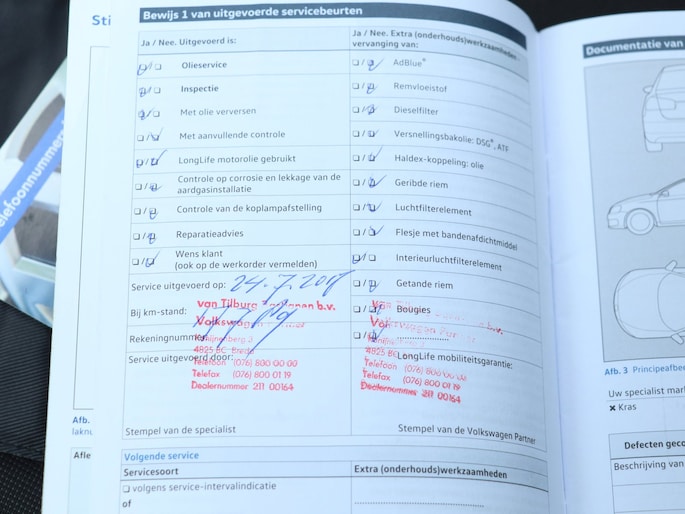 Sti
elefoonnummers
Bewijs 1 van uitgevoerde servicebeurten
Ja / Nee. Uitgevoerd is:
Olieservice
Inspectie
Met olie verversen
Met aanvullende controle
LongLife motorolie gebruikt
Controle op corrosie en lekkage van de
aardgasinstallatie
Controle van de koplampafstelling
Reparatieadvies
Wens klant
(ook op de werkorder vermelden)
Service uitgevoerd op: 24.7.
Bij km-stand:
Rekeningnummer
Service uitgevoerd door:
van Tilburg
Volkswagen
4825 BC Breda
Telefoon (076) 800 00 00
Telefax (076) 800 01 19
Dealernummer 211 00164
Stempel van de specialist
Ja / Nee. Extra (onderhouds)werkzaamheden -
vervanging van:
AdBlue®
Remvloeistof
Dieselfilter
Versnellingsbakolie: DSG®, ATF
Haldex-koppeling: olie
Geribde riem
Luchtfilterelement
Flesje met bandenafdichtmiddel
Interieurluchtfilterelement
Getande riem
Bougies
LongLife mobiliteitsgarantie:
4825 BC
Telefoon (076) 800 00 00
Telefax (076) 800 01 19
Dealernummer 211 00164
Stempel van de Volkswagen Partner
Volgende service
Servicesoort
Extra (onderhouds)werkzaamheden
volgens service-intervalindicatie
of
Afb.
laknu
Afle
Documentatie van
Afb. 3 Principeafbee
Uw specialist mar
× Kras
Defecten geco
Beschrijving van